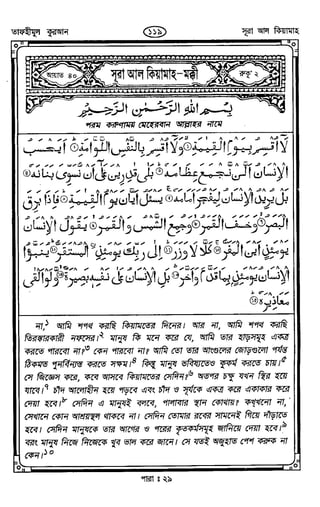 তাফহীমুল কুরআন
১১৯
সূরা আল কিয়ামাহ
আয়াত ৪০
সূরা আল কিয়ামাহ-মক্কী
রুকূ' ২
بِسْمِ اللهِ الرَّحْمٰنِ الرَّحِيْمِ
পরম করুণাময় মেহেরবান আল্লাহর নামে
لَآ اُقْسِمُ بِيَوْمِ الْقِيٰمَةِ ۝ وَلَآ اُقْسِمُ بِالنَّفْسِ اللَّوَّامَةِ ۝ اَيَحْسَبُ
الْاِنْسَانُ اَلَّنْ نَّجْمَعَ عِظَامَهٗ ۝ بَلٰى قٰدِرِيْنَ عَلٰٓى اَنْ نُّسَوِّيَ بَنَانَهٗ ۝
بَلْ يُرِيْدُ الْاِنْسَانُ لِيَفْجُرَ اَمَامَهٗ ۝ يَسْئَلُ اَيَّانَ يَوْمُ الْقِيٰمَةِ ۝ فَاِذَا بَرِقَ
الْبَصَرُ ۝ وَخَسَفَ الْقَمَرُ ۝ وَجُمِعَ الشَّمْسُ وَالْقَمَرُ ۝ يَقُوْلُ الْاِنْسَانُ
يَوْمَئِذٍ اَيْنَ الْمَفَرُّ ۝ كَلَّا لَا وَزَرَ ۝ اِلٰى رَبِّكَ يَوْمَئِذِ ِۨالْمُسْتَقَرُّ ۝ يُنَبَّؤُا
الْاِنْسَانُ يَوْمَئِذٍۢ بِمَا قَدَّمَ وَاَخَّرَ ۝ بَلِ الْاِنْسَانُ عَلٰى نَفْسِهٖ بَصِيْرَةٌ ۝ وَّلَوْ اَلْقٰى
مَعَاذِيْرَهٗ ۝
না,১ আমি শপথ করছি কিয়ামতের দিনের। আর না, আমি শপথ করছি
তিরস্কারকারী নফসের।২ মানুষ কি মনে করে যে, আমি তার হাড়সমূহ একত্র
করতে পারবো না।৩ কেন পারবো না? আমি তো তার আংগুলের জোড়াগুলো পর্যন্ত
ঠিকমত পুনর্বিন্যস্ত করতে সক্ষম।৪ কিন্তু মানুষ ভবিষ্যতেও কুকর্ম করতে চায়।৫
সে জিজ্ঞেস করে, কবে আসবে কিয়ামতের সেদিন।৬ অতপর চক্ষু যখন স্থির হয়ে
যাবে।৭ চাঁদ আলোহীন হয়ে পড়বে এবং চাঁদ ও সূর্যকে একত্র করে একাকার করে
দেয়া হবে।৮ সেদিন এ মানুষই বলবে, পালাবার স্থান কোথায়? কখ্খনো না,
সেখানে কোন আশ্রয়স্থল থাকবে না। সেদিন তোমার রবের সামনেই গিয়ে দাঁড়াতে
হবে। সেদিন মানুষকে তার আগের ও পরের কৃতকর্মসমূহ জানিয়ে দেয়া হবে।৯
বরং মানুষ নিজে নিজেকে খুব ভাল করে জানে। সে যতই অজুহাত পেশ করুক না
কেন।১০
পারা ঃ ২৯